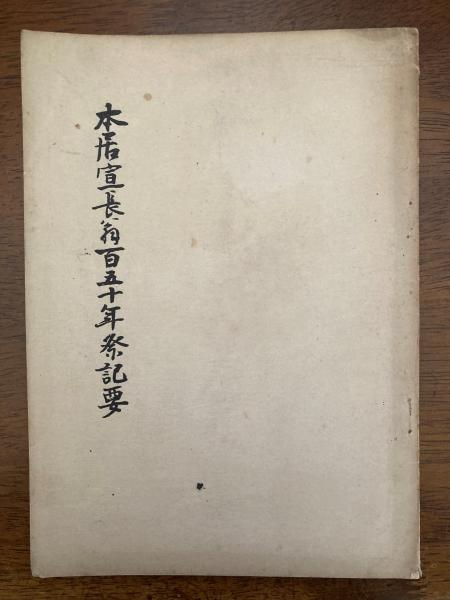 本居宣長翁百五十年祭記要